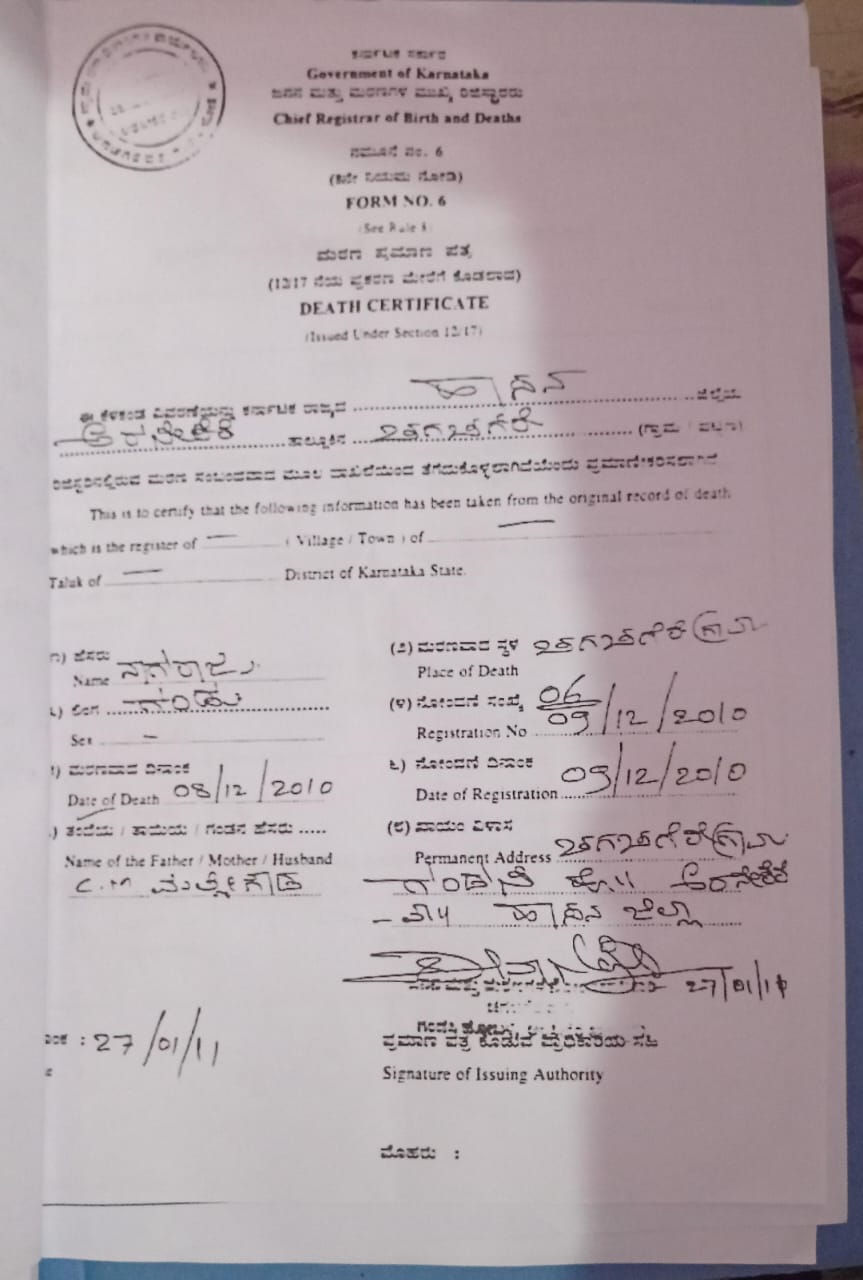 ಕರ್ನಾಟಕ ಸರ್ಕಾರ
Government of Karnataka
ಜನನ ಮತ್ತು ಮರಣಗಳ ಮುಖ್ಯ ರಿಜಿಸ್ಟ್ರಾರರು
Chief Registrar of Birth and Deaths
ನಮೂನೆ ನಂ. 6
(8ನೇ ನಿಯಮ ನೋಡಿ)
FORM NO. 6
(See Rule 8)
ಮರಣ ಪ್ರಮಾಣ ಪತ್ರ
(12/17 ನೆಯ ಪ್ರಕರಣ ಮೇರೆಗೆ ಕೊಡಲಾದ)
DEATH CERTIFICATE
(Issued Under Section 12/17)
ಈ ಕೆಳಕಂಡ ವಿವರಣೆಯನ್ನು ಕರ್ನಾಟಕ ರಾಜ್ಯದ ಹಾಸನ ಜಿಲ್ಲೆಯ
ಅರಸೀಕೆರೆ ತಾಲ್ಲೂಕಿನ (ಗ್ರಾಮ / ಪಟ್ಟಣ)
ರಿಜಿಸ್ಟರಿನಲ್ಲಿರುವ ಮರಣ ಸಂಬಂಧವಾದ ಮೂಲ ದಾಖಲೆಯಿಂದ ತೆಗೆದುಕೊಳ್ಳಲಾಗಿದೆಯೆಂದು ಪ್ರಮಾಣೀಕರಿಸಲಾಗಿದೆ
This is to certify that the following information has been taken from the original record of death
which is the register of — ( Village / Town ) of —
Taluk of — District of Karnataka State.
೧) ಹೆಸರು
Name ನಾಗರಾಜು
(೨) ಮರಣವಾದ ಸ್ಥಳ
Place of Death
೩) ಲಿಂಗ ಗಂಡು
Sex —
(೪) ನೋಂದಣಿ ಸಂಖ್ಯೆ 06
Registration No 09/12/2010
ಮರಣವಾದ ದಿನಾಂಕ
Date of Death 08/12/2010
೬) ನೋಂದಣಿ ದಿನಾಂಕ
Date of Registration 09/12/2010
) ತಂದೆಯ / ತಾಯಿಯ / ಗಂಡನ ಹೆಸರು .....
Name of the Father / Mother / Husband
C.M ಮಲ್ಲೇಗೌಡ
(೮) ಖಾಯಂ ವಿಳಾಸ
Permanent Address
ಗಂಡಸಿ ಹೋ|| ಅರಸೀಕೆರೆ
ತಾ|| ಹಾಸನ ಜಿಲ್ಲಾ
27/01/11
: 27/01/11
ಪ್ರಮಾಣ ಪತ್ರ ಕೊಡುವ ಪ್ರಾಧಿಕಾರಿಯ ಸಹಿ
Signature of Issuing Authority
ಮೊಹರು :